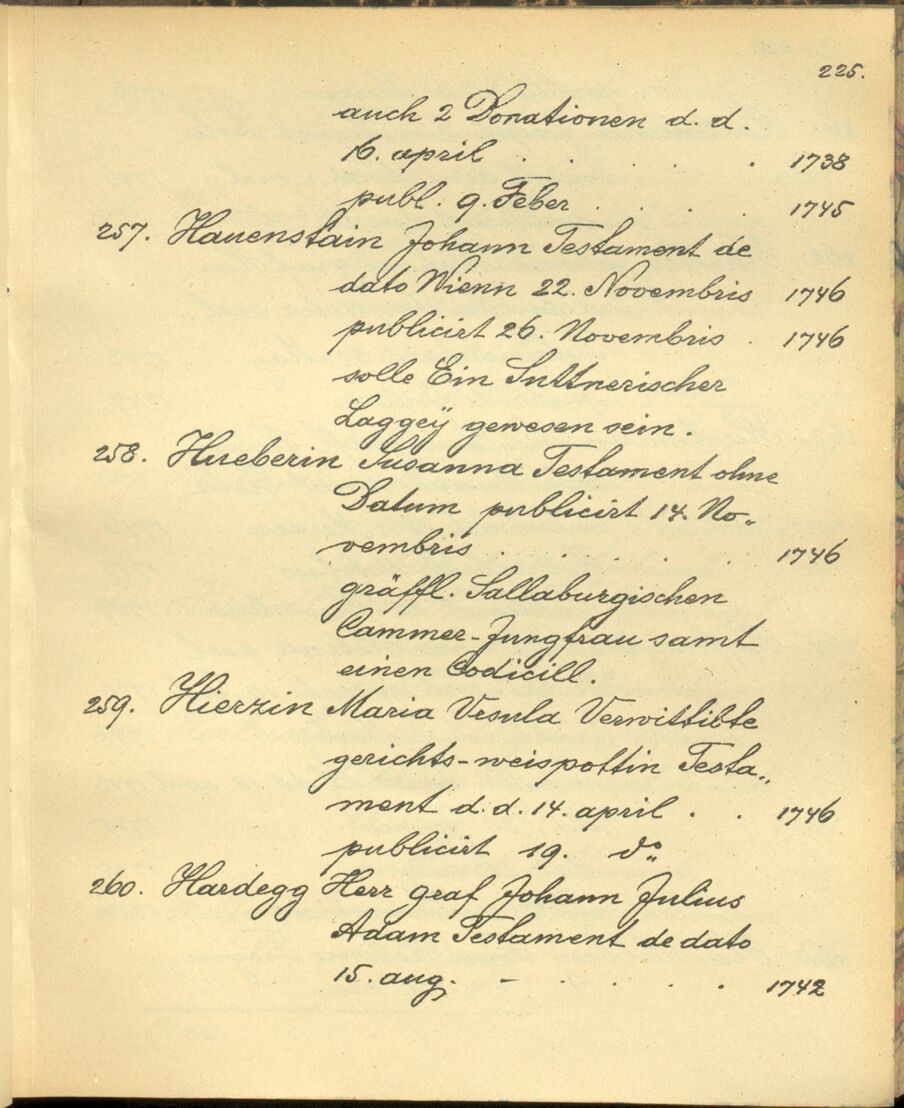 225.
auch 2 Donationen d. d.
16. april . . . . . 1738
publ. 9. Feber . . . . 1745
257. Hauenstain Johann Testament de
dato Wienn 22. Novembris 1746
publicirt 26. Novembris . 1746
solle Ein Suttnerischer
Laggeÿ gewesen sein.
258. Hueberin Susanna Testament ohne
Datum publicirt 14. No„
vembris . . . . . 1746
gräffl. Sallaburgischen
Cammer-Jungfrau samt
einen Codicill.
259. Hierzin Maria Vrsula Verwittibte
gerichts-weispottin Testa„
ment d. d. 14. april . . 1746
publicirt 19. do
260. Hardegg Herr graf Johann Julius
Adam Testament de dato
15. aug. - . . . . 1742